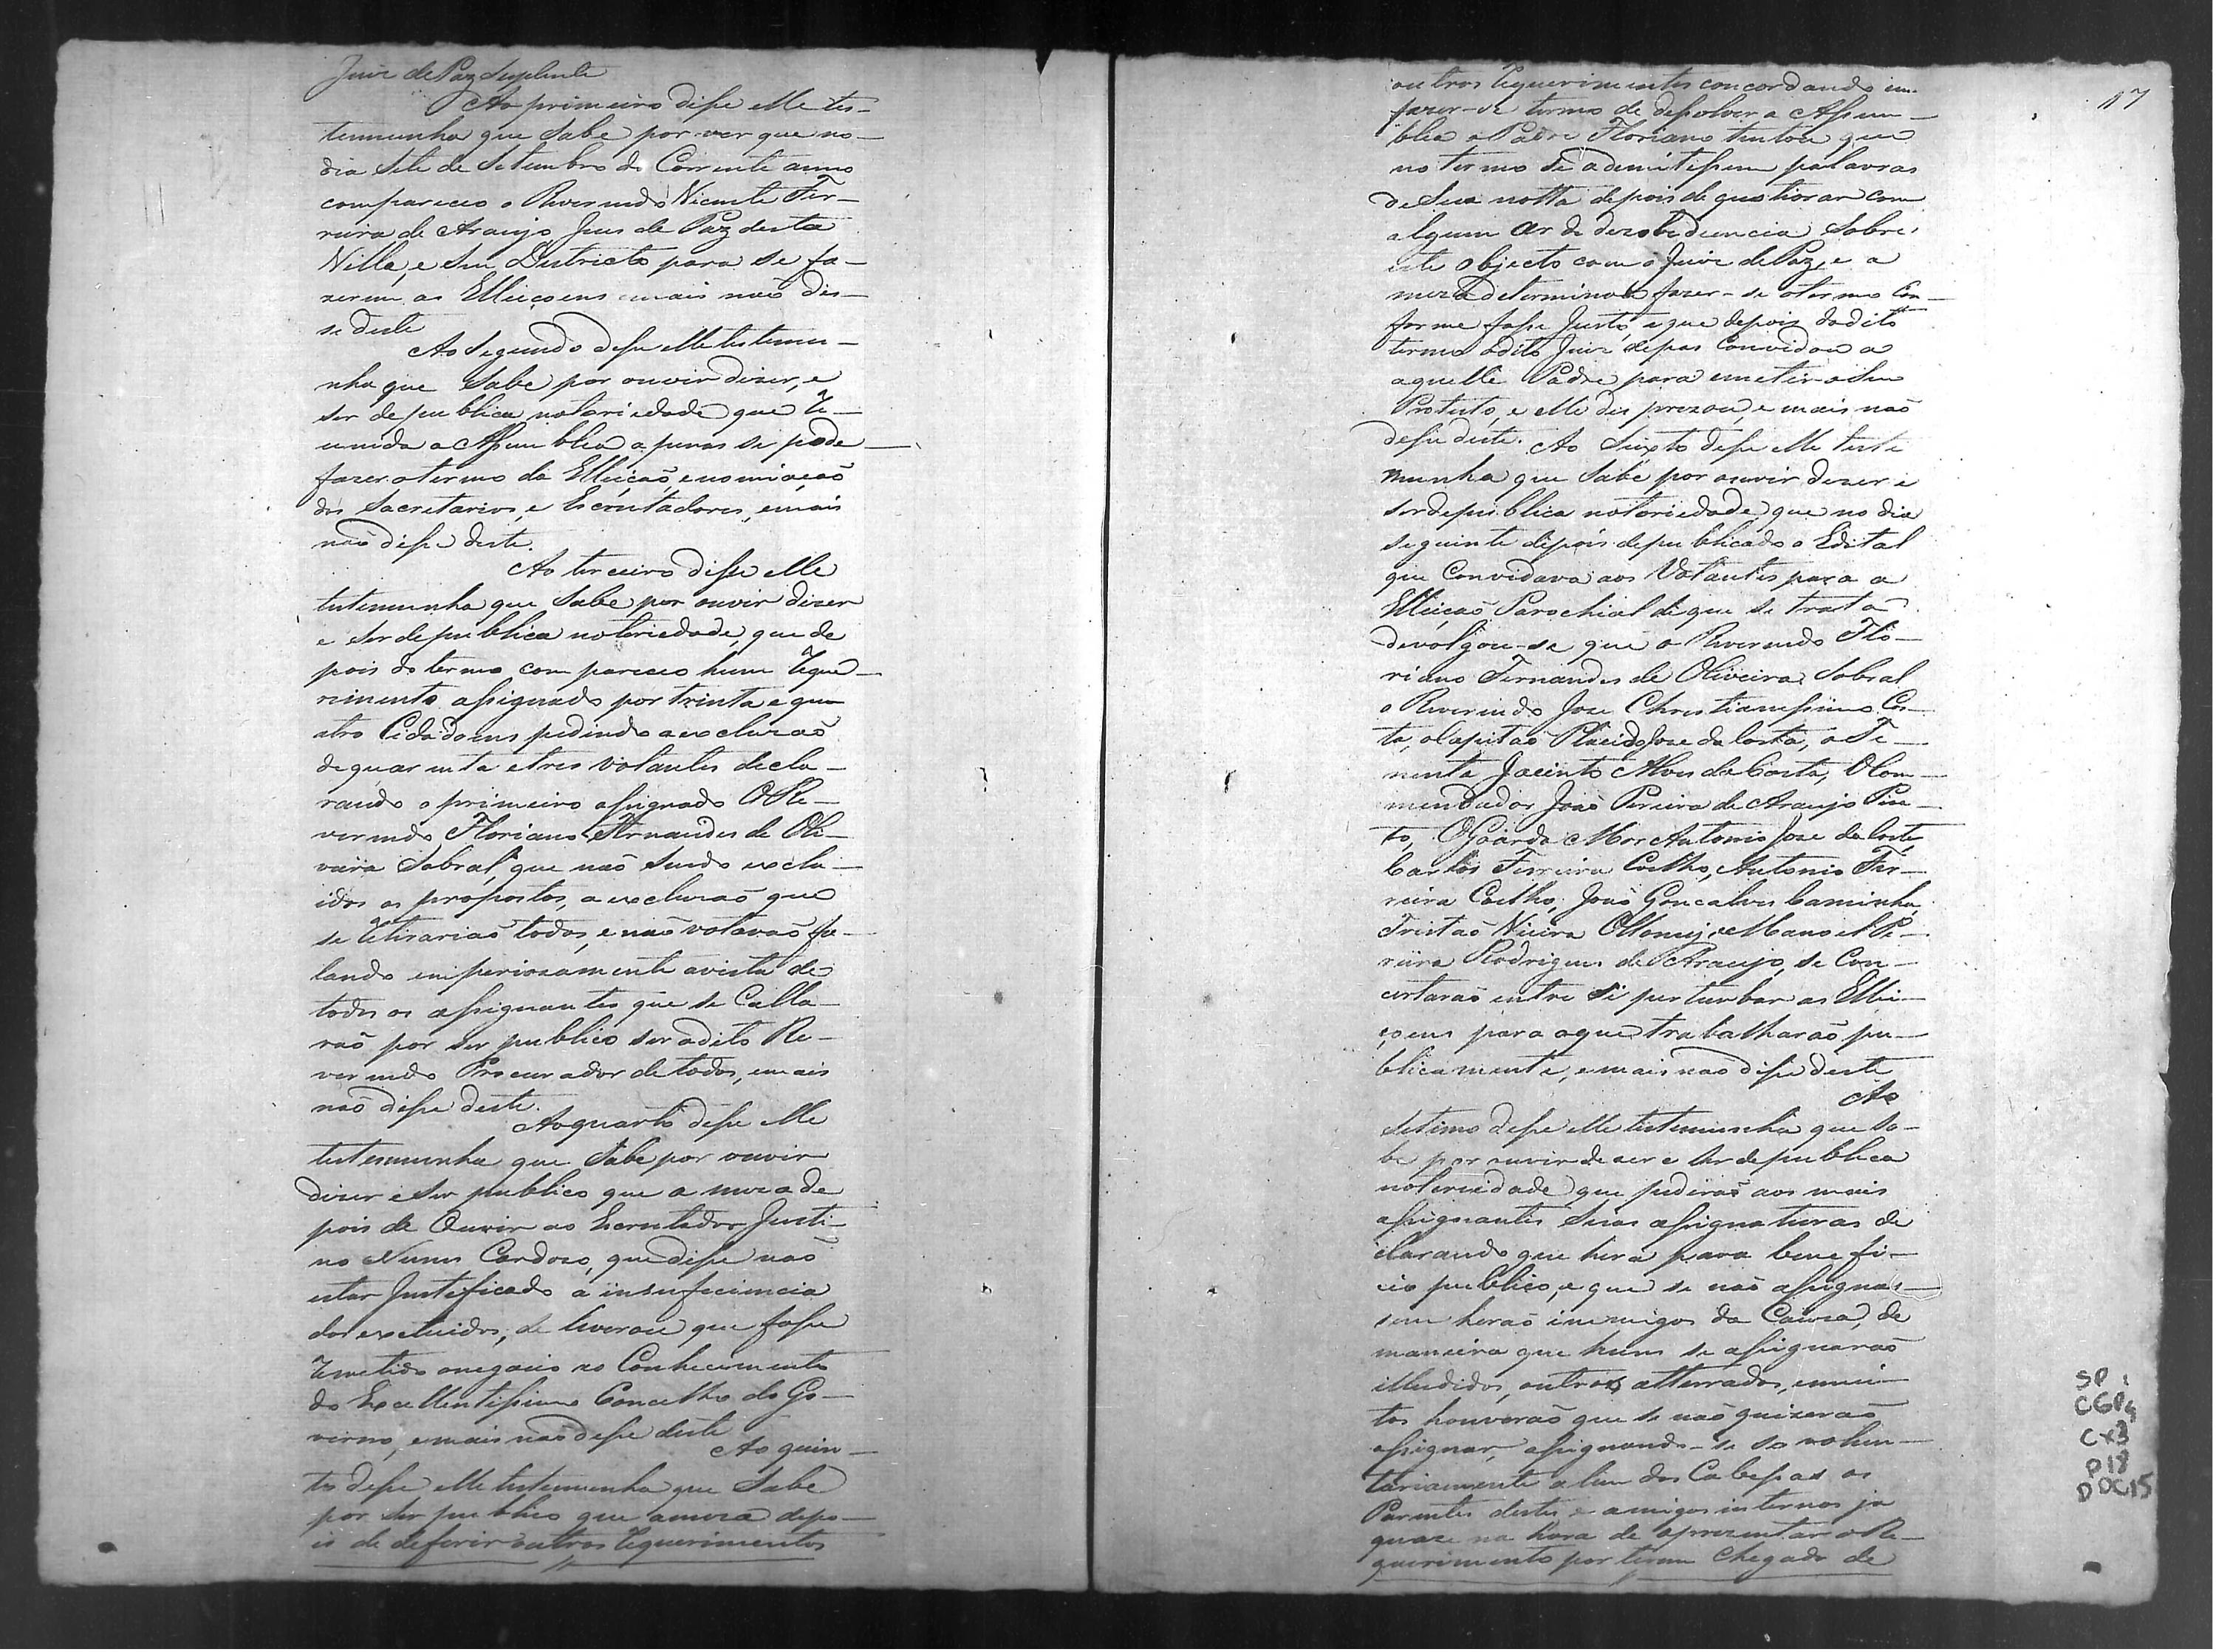 Juiz de Paz Suplente
Ao primeiro disse elle tes-
temunha que Sabe por ver que no
dia Sete de Setembro do Corrente anno
compareceo o Reverendo Vicente Fer-
reira de Araujo Juis de Paz desta
Villa, e Seu Destricto para se fa-
zerem as Elleiçoens emais naõ dis-
se deste
Ao Segundo disse elle testemu-
nha que Sabe por ouvir dizer, e
ser de publica notoriedade que Re-
unida a Assemblea apenas se pode
fazer o termo da Elleiçaõ, e nomiaçaõ
dos Sacretarios, e Escrutadores, emais
naõ disse deste.
Ao terceiro disse elle
testemunha que Sabe por ouvir dizer
e Ser de publica notoriedade, que de
pois do termo compareceo hum Reque-
rimento assignado por trinta e qua
atro Cidadoens pedindo a excluzaõ
de quarenta e tres Votantes decla-
rando o primeiro assignado O Re-
verendo Floriano Fernandes de Oli-
veira Sobral, que naõ Sendo exclu-
idos os propostos, a excluzaõ que
se Retirariaõ todos, e naõ votavaõ fa-
lando emperiozamente avista de
todos os assignantes que se Calla-
raõ por Ser publico ser o dito Re-
verendo Procurador de todos, emais
naõ disse deste.
Ao quarto disse elle
testemunha que Sabe por ouvir
dizer e Ser publico que a meza de
pois de Ouvir ao Escrutador Justi-
no Nunes Cardozo, que disse naõ
estar Justificado a insuficiencia
dos excluidos, de liverou que fosse
Remetido onegocio ao Conhecimento
do Excellentissimo Concelho do Go-
verno, emais naõ disse deste
Ao quin-
to disse elle testemunha que Sabe
por Ser publico que ameza depo-
is de deferir outros Requerimentos
17
outros Requerimentos concordando em
fazer-se termo de dessolver a Assem-
blea o Padre Floriano tentou que
no termo se ademitissem palavras
de Sua notta depois de questionar com
algum ar de dezobediencia Sobre
este objecto com o Juiz de Paz, e a
meza determinou fazer-se o termo Con-
forme fosse Justo, e que depois do dito
termo o dito Juiz de pas Convidou a
aquelle Padre para emetir o Seu
Protesto, e elle des prezou, e mais naõ
disse deste. Ao Seixto disse elle teste
munha que Sabe por ouvir dezer e
Ser de publica notoriedade, que no dia
seguinte depois de publicado o Edital
que Convidava aos Votantes para a
Elleiçaõ Parochial de que se trata
devolgou-se que o Reverendo Flo-
riano Fernandes de Oliveira Sobral
o Reverendo Joze Christianissimo Cos-
ta, o Capitaõ Placido Joze da Costa, o Te-
nente Jacinto Alves da Costa, O Com-
mendador Joaõ Pereira de Araujo Pin-
to, O Goarda Mor Antonio Joze da Costa,
Carlos Ferreira Coelho, Antonio Fer-
reira Coelho, Joaõ Goncalves Caminha,
Tristaõ Vieira Ottoney, e Manoel Pe-
reira Rodrigues de Araujo, se Con-
certaraõ entre Si perturbar as Ellei-
çoens para o que trabalharaõ pu-
blicamente, emais naõ disse deste
Ao
Setimo disse elle testemunha que Sa-
be por ouvir dezer e Ser de publica
notoriedade que pediraõ aos mais
assignantes Suas assignaturas de
clarando que hera para benefi-
cio publico, e que se naõ assignas-
sem heraõ inemigos da Cauza, de
maneira que huns se assignaraõ
illudidos, outros atterrados, e mui-
tos houveraõ que se naõ quizeraõ
assignar, assignando-se so volun-
tariamente alem dos Cabessas os
Parentes destes e amigos internos ja
quaze na hora de aprezentar o Re-
querimento por terem chegado de
SP 1
CGP4
CX3
P18
DOC15